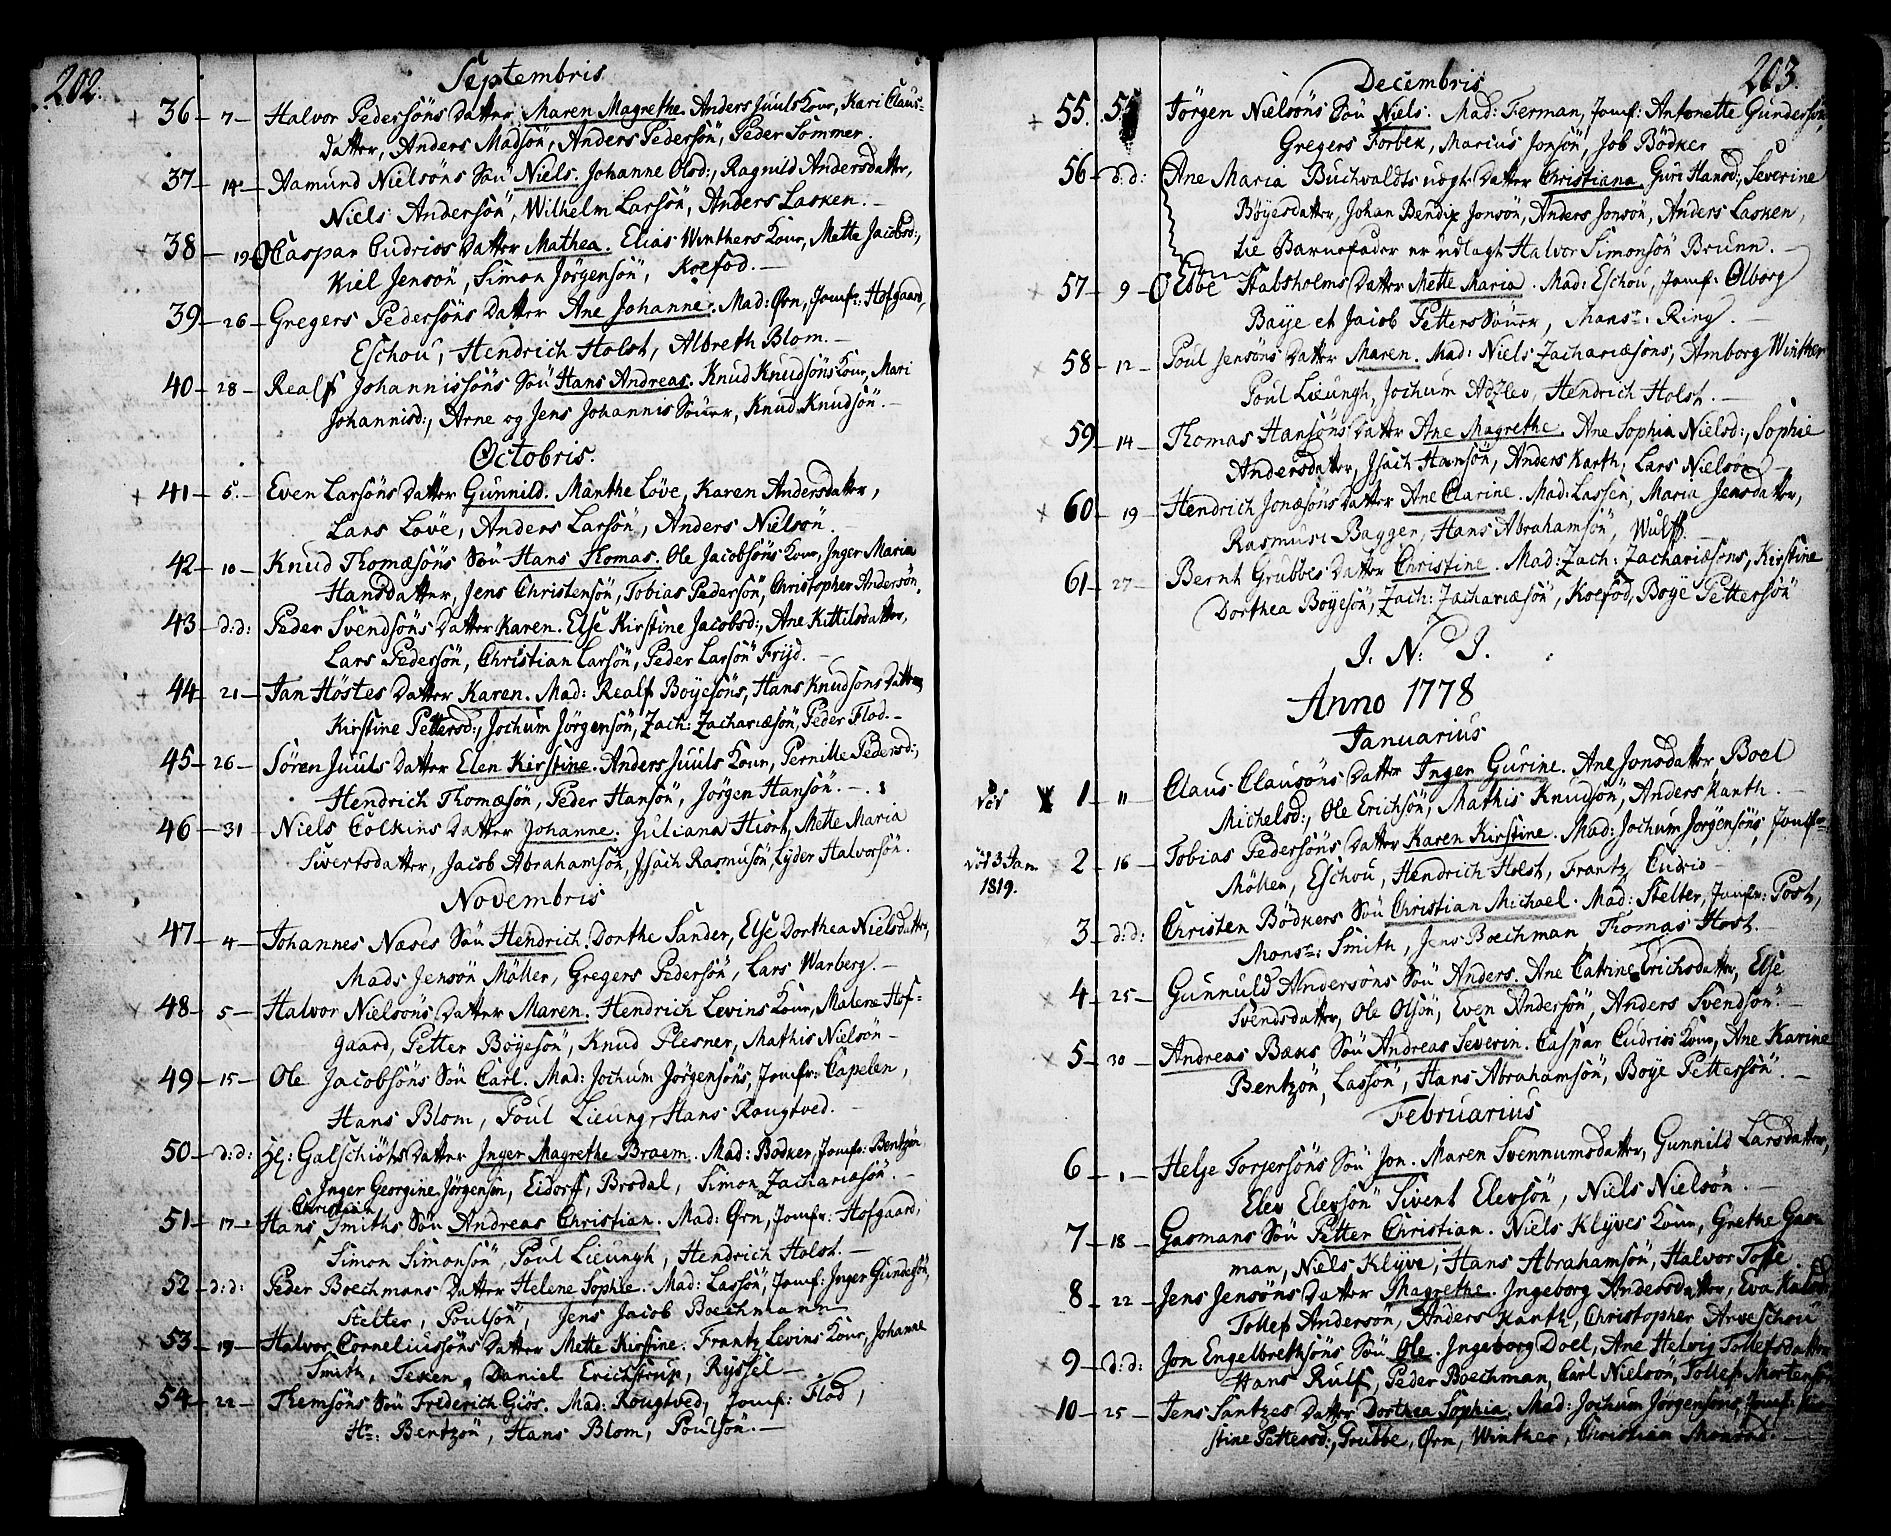 202.
Septembris
+ 36 - 7 - Halvor Pedersöns Datter Maren Magrethe. Anders Juuls Kone, Kari Claus-
datter, Anders Madsön, Anders Pedersön, Peder Sommer.
× 37 - 14 - Aamund Nielsöns Sön Niels. Johanne Olsd:, Ragnild Andersdatter,
Niels Andersön, Wilhelm Larsön, Anders Lasken.
× 38 - 19 Caspar Cudrios Datter Mathea. Elias Winthers Kone, Mette Jacobsd:,
Kiel Jensön, Simon Jörgensön, Koefod.
39 - 26 - Gregers Pedersöns Datter Ane Johanne. Mad: Örn, Jomfr: Hofgaard,
Eschou, Hendrich Holst, Albreth Blom.
40 - 28 - Realf Johannissöns Sön Hans Andreas. Knud Knudsöns Kone, Mari
Johannisd:, Arne og Jens Johannis Söner, Knud Knudsön.
Octobris.
+ 41 - 5 - Even Larsöns Datter Gunnild. Manthe Löve, Karen Andersdatter,
Lars Löve, Anders Larsön, Anders Nielsön.
42 - 10 - Knud Thomæsöns Sön Hans Thomas. Ole Jacobsöns Kone, Inger Maria
Hansdatter, Jens Christensön, Tobias Pedersön, Christopher Andersön.
43 - d:d: Peder Svendsöns Datter Karen. Else Kirstine Jacobsd:, Ane Kittilsdatter,
Lars Pedersön, Christian Larsön, Peder Larsön Frijd.
+ 44 - 21 - Jan Höstes Datter Karen. Mad: Realf Boyesöns, Hans Knudsöns Datter
Kirstine Pettersd:, Jochum Jörgensön, Zach: Zachariæsön, Peder Flod.
45 - 26 - Sören Juuls Datter Elen Kirstine. Anders Juuls Kone, Pernille Pedersd:,
Hendrich Thomæsön, Peder Hansön, Jörgen Hansön.
46 - 31 - Niels Colkins Datter Johanne. Juliana Hiort, Mette Maria
Sivertsdatter, Jacob Abrahamsön, Isach Rasmusön, Lyder Halvorsön.
Novembris
× 47 - 4 - Johannes Næses Sön Hendrich. Dorthe Sander, Else Dorthea Nielsdatter,
Mads Jensön Möller, Gregers Pedersön, Lars Warberg.
× 48 - 5 - Halvor Nielsöns Datter Maren. Hendrich Levins Kone, Malene Hof-
gaard, Petter Böyesön, Knud Plesner, Mathis Nielsön
× 49 - 15 - Ole Jacobsöns Sön Carl. Mad: Jochum Jörgensöns, Jomfr: Capelen,
Hans Blom, Poul Lieung, Hans Rougtved.
50 - d:d: Galschiöts Datter Inger Magrethe Braem. Mad: Bödker, Jomfr: Bentzön
Inger Georgine Jörgensön, Eidorff, Brodal, Simon Zachariæsön.
Christian
51 - 17 - Hans Smiths Sön Andreas Christian. Mad: Örn, Jomfr: Hofgaard,
Simon Simonsön, Poul Lieungh, Hendrich Holst.
52 - d:d: Peder Boechmans Datter Helene Sophie. Mad: Lassön, Jomf: Inger Gundersön,
Stelter, Poulsön, Jens Jacob Boechmann
× 53 - 19 - Halvor Corneliussöns Datter Mette Kirstine. Frantz Levins Kone, Johanne
Smith, Tesken, Daniel Erichstrup, Ryssel
54 - 22 - Themsöns Sön Frederich Giös. Mad: Rougtved, Jomf: Flod,
Hr: Bentzön, Hans Blom, Poulsön.
203.
Decembris
+ 55. 5 Jörgen Nielsöns Sön Niels. Mad: Ferman, Jomf: Antonette Gundersön
Gregers Forbek, Marius Jonsön, Job Bödker
56 - d:d: Ane Maria Buchvaldts uägte Datter Christiana. Guri Hansd:, Severine
Böyesdatter, Johan Bendix Jonsön, Anders Jonsön, Anders Lasken,
til Barnefader er udlagt Halvor Simonsön Brunn.
× 57 - 9 - Ebbe Habsholms Datter Mette Maria. Mad: Eschou, Jomf: Olborg
Baye et Jacob Petters Söner, Monsr. Ring.
× 58 - 12 - Poul Jensöns Datter Maren. Mad: Niels Zachariæsöns, Amborg Winther
Poul Lieungh, Jochum Adzlev, Hendrich Holst.
59 - 14 - Thomas Hansöns Datter Ane Magrethe. Ane Sophia Nielsd:, Sophie
Andersdatter, Isach Hansön, Anders Kanth, Lars Nielsön
× 60 - 19 - Hendrich Jonæsöns Datter Ane Clarine. Mad: Lassen, Maria Jensdatter,
Rasmus Bagger, Hans Abrahamsön, Wulff
61 - 27 - Bernt Grubbes Datter Christine. Mad: Zach: Zachariæsöns, Kirstine
Dorthea Boyesön, Zach: Zachariæsön, Koefod, Boye Pettersön
J. N. J.
Anno 1778
Januarius
× 1 - 11 - Claus Clausöns Datter Inger Gurine. Ane Jonsdatter Boel
Michelsd:, Ole Erichsön, Mathis Knudsön, Anders Kanth.
3 Jan 1819. × 2 - 16 - Tobias Pedersöns Datter Karen Kirstine. Mad: Jochum Jörgensöns, Jomfr:
Möller, Eschou, Hendrich Holst, Frantz Cudrio
3 - d:d: Christen Bödkers Sön Christian Michael. Mad: Stelter, Jomfr: Post,
Monsr: Smith, Jens Boechman Thomas Host.
× 4 - 25 - Gunnuld Andersöns Sön Anders. Ane Catrine Erichsdatter, Else
Svendsdatter, Ole Olsön, Even Andersön, Anders Svendsön.
× 5 - 30 - Andreas Bæks Sön Andreas Severin. Caspar Cudrios Kone, Ane Karine
Bentzön, Lassön, Hans Abrahamsön, Boye Pettersön.
Februarius
6 - 1 - Helje Torjersöns Sön Jon. Maren Svennumsdatter, Gunnild Larsdatter,
Elev Elevsön Sivent Elevsön, Niels Nielsön.
7 - 18 - Gasmans Sön Petter Christian. Niels Klyves Kone, Grethe Gas-
man, Niels Klyve, Hans Abrahamsön, Halvor Tosse
8 - 22 - Jens Jensöns Datter Magrethe. Ingeborg Andersdatter, Eva
Tollef Andersön, Anders Kanth, Christopher Arveschou
× 9 - d:d: Jon Engelbrethsöns Sön Ole. Ingeborg Doel, Ane Helvig Tollefsdatter
Hans Rulf, Peder Boechman, Carl Nielsön, Tollef Mortensön
× 10 - 25 - Jens Santzes Datter Dorthea Sophia. Mad: Jochum Jörgensöns, Jomf: Kir-
stine Pettersd:, Grubbe, Örn, Winther, Christian Monrad.